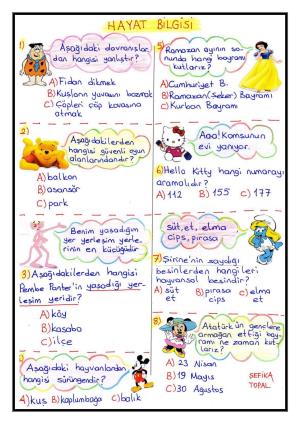 HAYAT BİLGİSİ
1)
Aşağıdaki davranışlar-
dan hangisi yanlıştır?
A) Fidan dikmek
B) Kuşların yuvasını bozmak
C) Çöpleri çöp kovasına
atmak
2)
Aşağıdakilerden
hangisi güvenli oyun
alanlarındandır?
A) balkon
B) asansör
C) park
Benim yaşadığım
yer yerleşim yerle-
rinin en küçüğüdür
3) Aşağıdakilerden hangisi
Pembe Panter'in yaşadığı yer-
leşim yeridir?
A) köy
B) kasaba
C) ilçe
Aşağıdaki hayvanlardan
hangisi sürüngendir?
4) kuş B) kaplumbağa C) balık
5)
Ramazan ayının so-
nunda hangi bayramı
kutlarız?
A) Cumhuriyet B.
B) Ramazan (Şeker) Bayramı
C) Kurban Bayramı
Aaa! Komşunun
evi yanıyor.
6) Hello Kitty hangi numarayı
aramalıdır?
A) 112 B) 155 C) 177
süt, et, elma
cips, pırasa
7) Şirine'nin saydığı
besinlerden hangileri
hayvansal besindir?
A) süt B) pırasa C) elma
et cips et
8)
Atatürk'ün gençlere
armağan ettiği bay-
ramı ne zaman kut-
larız?
A) 23 Nisan
B) 19 Mayıs
C) 30 Ağustos
ŞEFİKA
TOPAL